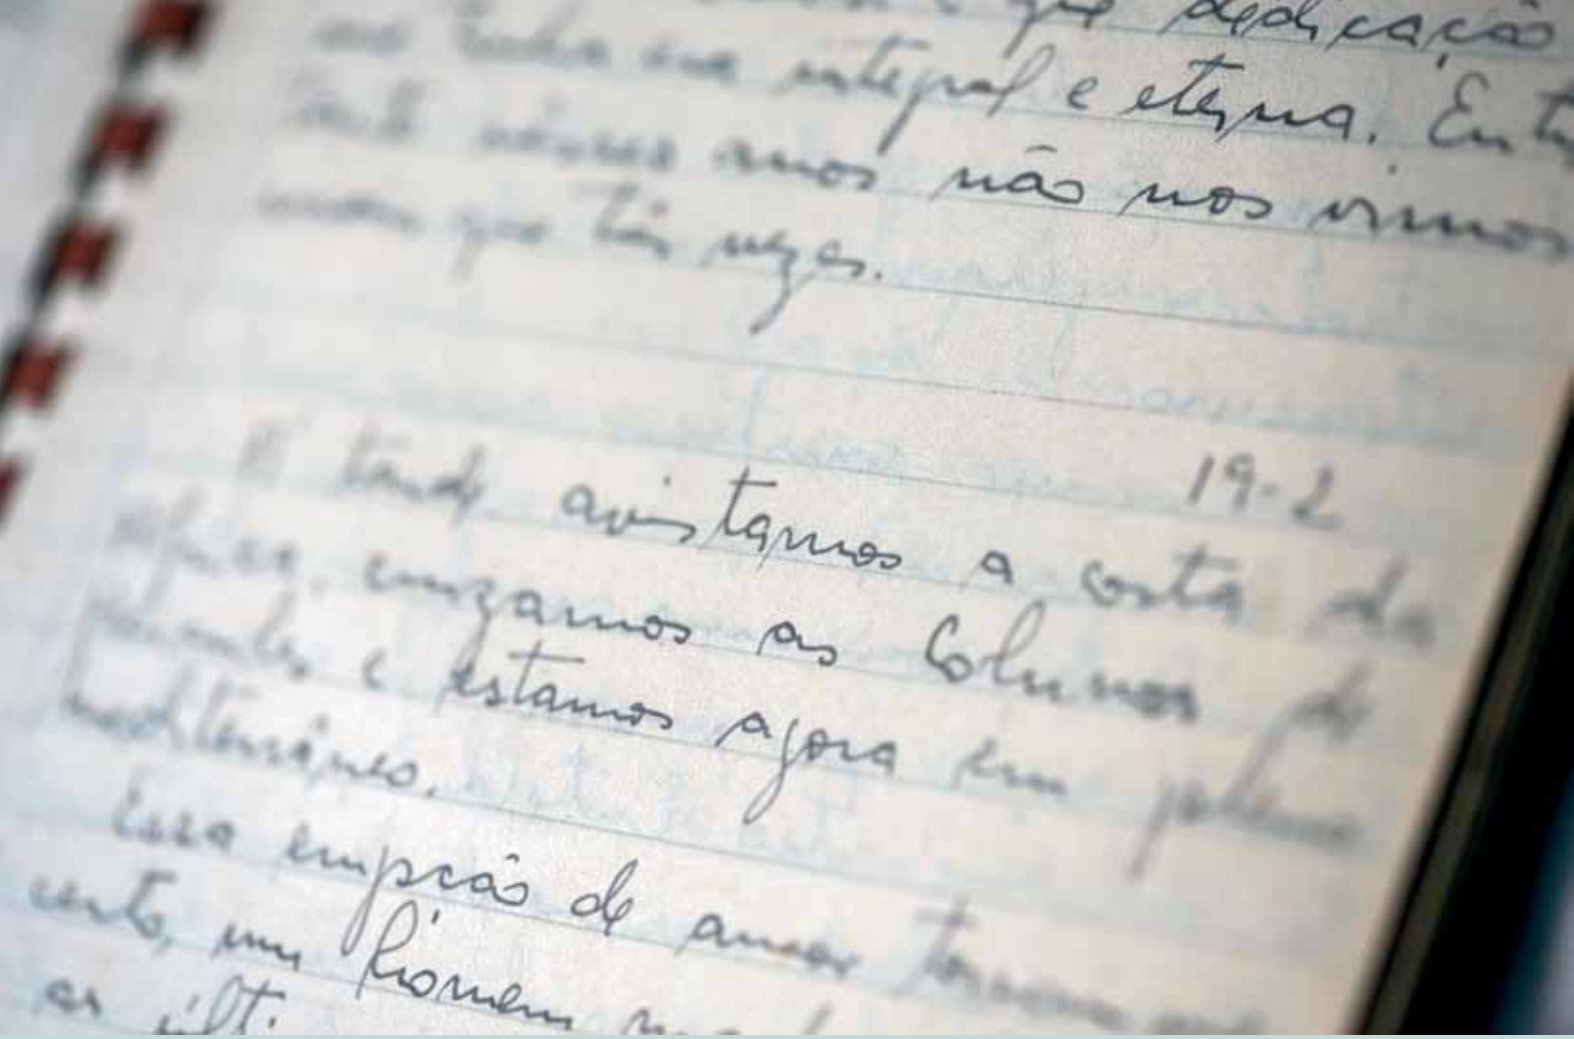 que dedicação
integral e eterna. Ent
anos não nos vimos
que três vezes.
19-2
À tarde avistamos a costa da
África, cruzamos as Colunas de
Hércules e estamos agora em pleno
Mediterrâneo.
Essa erupção de amor
certo, um homem
as últi